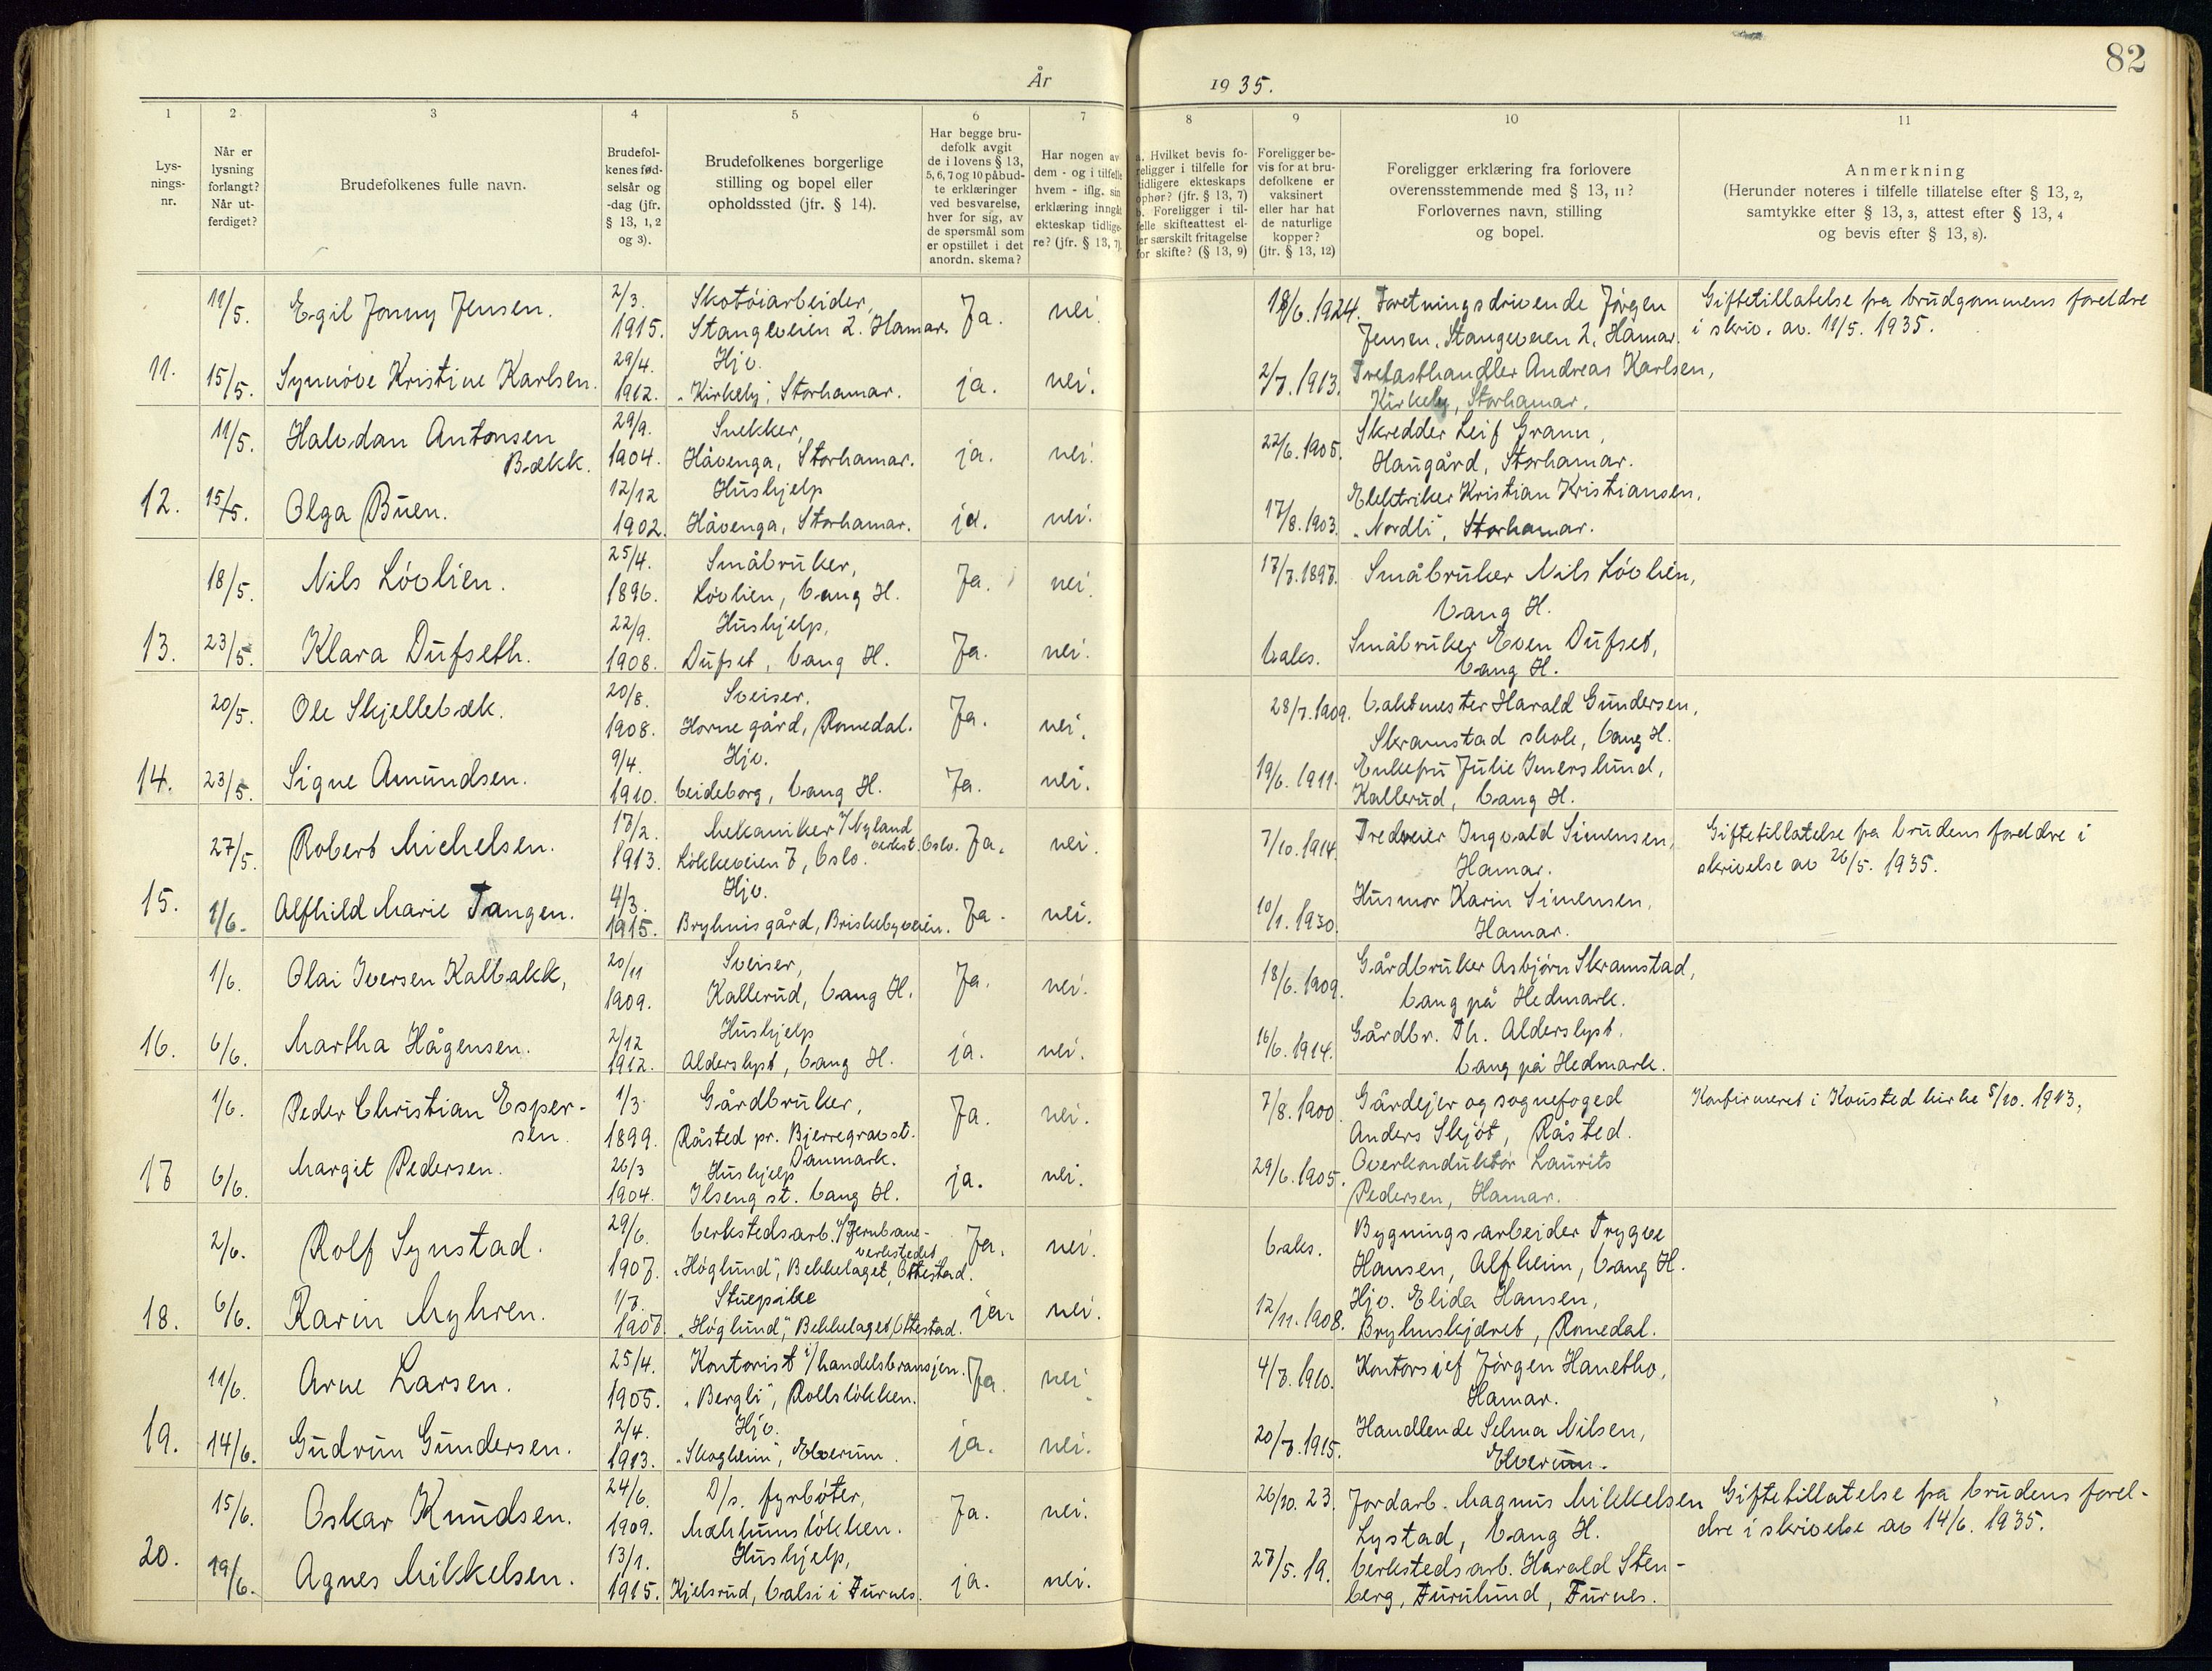 82
År 1935.
1 2 3 4 5 6 7 8 9 10 11
Lys-
nings-
nr.
Når er
lysning
forlangt?
Når ut-
ferdiget?
Brudefolkenes fulle navn.
Brudefol-
kenes fød-
selsår og
-dag (jfr.
§ 13, 1, 2
og 3).
Brudefolkenes borgerlige
stilling og bopel eller
opholdssted (jfr. § 14).
Har begge bru-
defolk avgit
de i lovens § 13,
5, 6, 7 og 10 påbud-
te erklæringer
ved besvarelse,
hver for sig, av
de spørsmål som
er opstillet i det
anordn. skema?
Har nogen av
dem - og i tilfelle
hvem - iflg. sin
erklæring inngåt
ekteskap tidlige-
re? (jfr. § 13, 7).
a. Hvilket bevis fo-
religger i tilfelle for
tidligere ekteskaps
ophør? (jfr. § 13, 7)
b. Foreligger i til-
felle skifteattest el-
ler særskilt fritagelse
for skifte? (§ 13, 9)
Foreligger be-
vis for at bru-
defolkene er
vaksinert
eller har hat
de naturlige
kopper?
(jfr. § 13, 12)
Foreligger erklæring fra forlovere
overensstemmende med § 13, 11?
Forlovernes navn, stilling
og bopel.
Anmerkning
(Herunder noteres i tilfelle tillatelse efter § 13, 2,
samtykke efter § 13, 3, attest efter § 13, 4
og bevis efter § 13, 8).
11/5. Egil Jonny Jensen. 2/3. 1915. Skotøiarbeider, Ja. nei. 18/6. 1924. Foretningsdrivende Jörgen Giftetillatelse fra brudgommens foreldre
Stangeveien 2. Hamar. Jensen, Stangeveien 2, Hamar. i skriv. av. 11/5. 1935.
11. 15/5. Synnöve Kristine Karlsen. 29/4. 1912. Hjv. ja. nei. 2/7. 1913. Trelasthandler Andreas Karlsen,
"Kirkeby", Storhamar. Kirkeby, Storhamar.
11/5. Halvdan Antonsen 29/9. 1904. Snekker, ja. nei. 22/6. 1905. Skredder Leif Grann,
Bækk. Håvenga, Storhamar. Haugård, Storhamar.
12. 15/5. Olga Buen. 12/12 1902. Hushjelp ja. nei. 17/8. 1903. Elektriker Kristian Kristiansen,
Håvenga, Storhamar. "Nordli", Storhamar.
18/5. Nils Lövlien. 25/4. 1896. Småbruker, Ja. nei. 17/7. 1897. Småbruker Nils Lövlien,
Lövlien, Vang H. Vang H.
13. 23/5. Klara Dufseth. 22/9. 1908. Hushjelp, Ja. nei. Vaks. Småbruker Even Dufset,
Dufset, Vang H. Vang H.
20/5. Ole Skjellebæk. 20/8. 1908. Sveiser, Ja. nei. 28/7. 1909. Vaktmester Harald Gundersen,
Horne gård, Romedal. Skramstad skole, Vang H.
14. 23/5. Signe Amundsen. 9/4. 1910. Hjv. Ja. nei. 19/6. 1911. Enkefru Julie Imerslund,
Veideborg, Vang H. Kallerud, Vang H.
27/5. Robert Michelsen. 17/2. 1913. Mekaniker v/Nyland verkst. Oslo. Ja. nei. 7/10. 1914. Tredreier Ingvald Simensen, Giftetillatelse fra brudens foreldre i
Lökkeveien 7, Oslo. Hamar. skrivelse av 26/5. 1935.
15. 1/6. Alfhild Marie Tangen. 4/3. 1915. Hjv. Ja. nei. 10/1. 1930. Husmor Karin Simensen,
Bryhnis gård, Briskebyveien. Hamar.
1/6. Olai Iversen Kalbakk, 20/11 1909. Sveiser, Ja. nei. 18/6. 1909. Gårdbruker Asbjörn Skramstad,
Kallerud, Vang H. Vang på Hedmark.
16. 6/6. Martha Hågensen. 2/12 1912. Hushjelp ja. nei. 16/6. 1914. Gårdbr. Th. Alderslyst.
Alderslyst, Vang H. Vang på Hedmark.
1/6. Peder Christian Esper- 1/3. 1899. Gårdbruker, Ja. nei. 7/8. 1900. Gårdejer og sognefoged Konfirmeret i Kousted kirke 5/10. 1913,
sen. Råsted pr. Bjerregrav st. Danmark. Anders Skjöt, Råsted.
17 6/6. Margit Pedersen. 26/3 1904. Hushjelp ja. nei. 29/6. 1905. Overkonduktør Laurits
Ilseng st. Vang H. Pedersen, Hamar.
2/6. Rolf Synstad. 29/6. 1907. Verkstedsarb. v/Jernbane- verkstedet Ja. nei. Vaks. Bygningsarbeider Trygve
"Höglund", Bekkelaget, Ottestad. Hansen, Alfheim, Vang H.
18. 6/6. Karin Myhren. 1/7. 1907. Stuepike ja. nei. 12/11. 1908. Hjv. Elida Hansen,
"Höglund", Bekkelaget, Ottestad. Bryhnskjdret, Romedal.
11/6. Arne Larsen. 25/4. 1905. Kontorist i/handelsbransjen. Ja. nei. 4/7. 1910. Kontorsjef Jörgen Hanetho,
"Bergli", Rollslökken. Hamar.
19. 14/6. Gudrun Gundersen. 2/4. 1913. Hjv. ja. nei. 20/7. 1915. Handlende Selma Nilsen,
"Skogheim", Elverum. Elverum.
15/6. Oskar Knudsen. 24/6. 1909. D/s. fyrböter, Ja. nei. 26/10. 23. Jordarb. Magnus Mikkelsen Giftetillatelse fra brudens forel-
Mæhlumslökken. Lystad, Vang H. dre i skrivelse av 14/6. 1935.
20. 19/6. Agnes Mikkelsen. 13/1. 1915. Hushjelp, ja. nei. 27/5. 19. Verkstedsarb. Harald Sten-
Kjelsrud, Valsi i Furnes. berg, Furulund, Furnes.